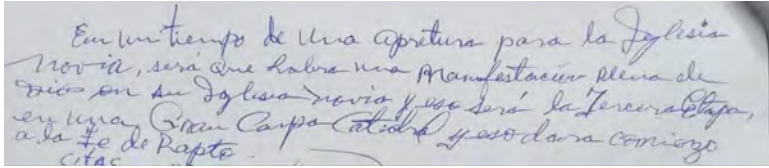 En un tiempo de una apretura para la Iglesia
novia, será que habra una manifestación plena de
Dios en su Iglesia novia y eso será la Tercera Etapa,
en una Gran Carpa Catedral y eso dara comienzo
a la Fe de Rapto.
citas